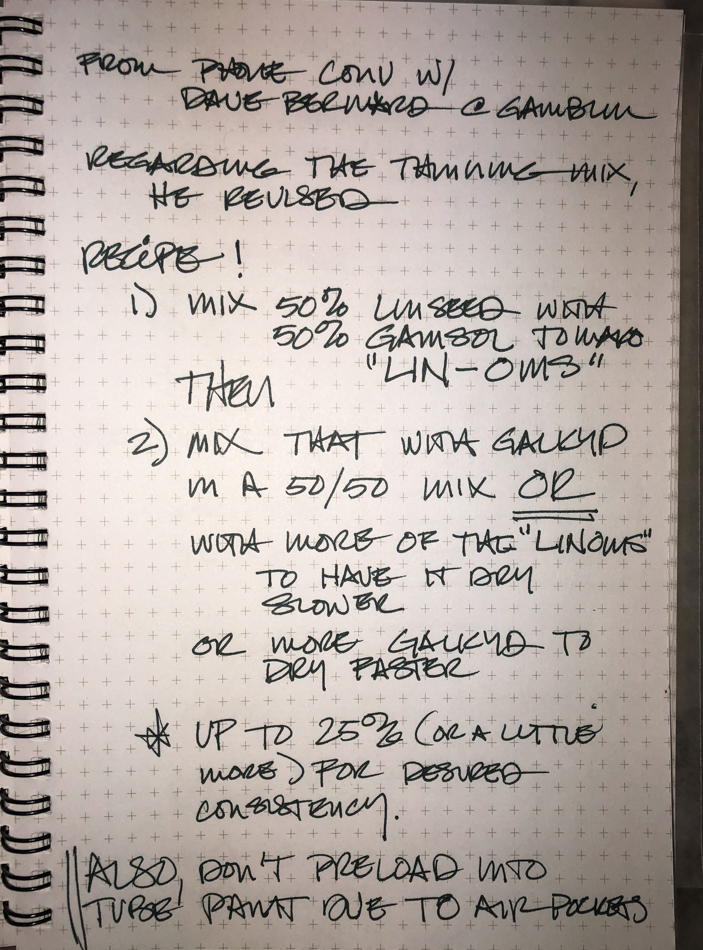 FROM PHONE CONV W/
DAVE BERNARD @ GAMBLIN
REGARDING THE THINNING MIX,
HE REVISED
RECIPE!
1) MIX 50% LINSEED WITH
50% GAMSOL TO MAKE
"LIN-OMS"
THEN
2) MIX THAT WITH GALKYD
IN A 50/50 MIX OR
WITH MORE OF THE "LINOMS"
TO HAVE IT DRY
SLOWER
OR MORE GALKYD TO
DRY FASTER
* UP TO 25% (OR A LITTLE
MORE) FOR DESIRED
CONSISTENCY.
ALSO, DON'T PRELOAD INTO
TUBE PAINT DUE TO AIR POCKETS